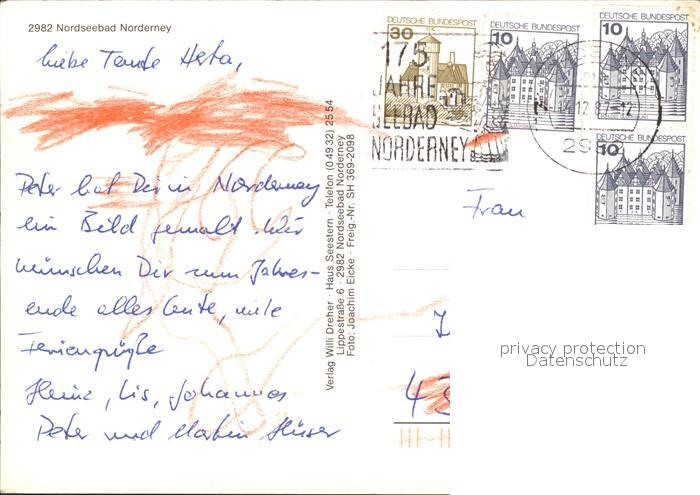 2982 Nordseebad Norderney
liebe Tante Herta,
Peter hat Dir in Norderney
ein Bild gemalt. Wir
wünschen Dir zum Jahres-
ende alles Gute, viele
Feriengrüße
Heinz, Lis, Johannes
Peter und Martin Hüser
Verlag Willi Dreher · Haus Seestern · Telefon (0 49 32) 25 54
Lippestraße 6 · 2982 Nordseebad Norderney
Foto: Joachim Eicke · Freig.-Nr. SH 369-2098
DEUTSCHE BUNDESPOST
30
DEUTSCHE BUNDESPOST
10
DEUTSCHE BUNDESPOST
10
10
175
JAHRE
SEEBAD
NORDERNEY
12.87-12
298
Frau
privacy protection
Datenschutz